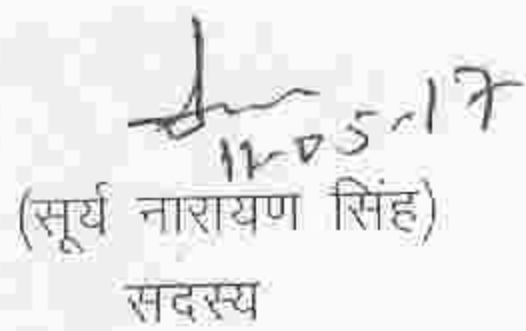 11-05-17
(सूर्य नारायण सिंह)
सदस्य